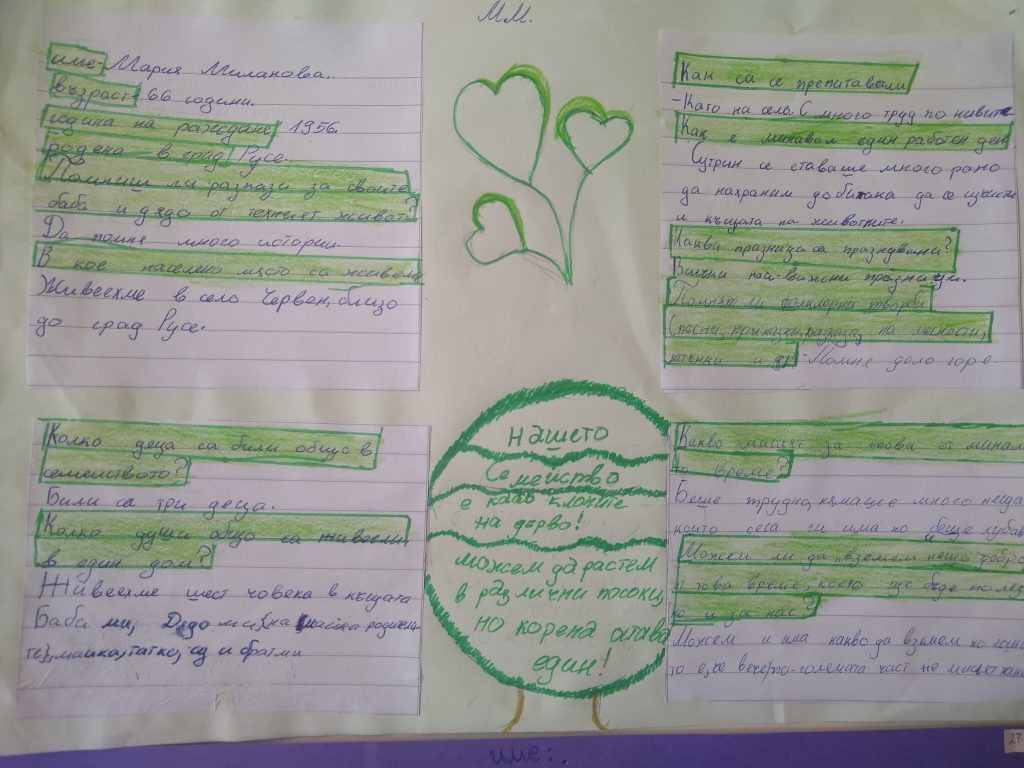 М.М.
име- Мария Миланова.
възраст- 66 години.
година на раждане 1956.
родена в град Русе.
Помниш ли разкази за своите
баба и дядо от техният живот?
Да помня много истории.
В кое населено място са живели
Живеехме в село Червен, близо
до град Русе.
Как са се препитавали
-Като на село. С много труд по нивите
Как е минавал един работен ден
Сутрин се ставаше много рано
да нахраним добитака да се
и къщата на животните.
Какви празници са празнували?
Всички най-важни празници.
Помнят ли фолклорни творби
(песни, приказки, разкази, на местности,
и др -Помня доло горе.
Колко деца са били общо в
семейството?
Били са три деца.
Колко души общо са живеели
в един дом?
Живеехме шест човека в къщата
Баба ми, Дядо ми (на майка родители-
те), майка, татко, аз и братми
Нашето
Семейство
е като клоните
на дърво!
можем да растем
в различни посоки,
но корена остава
един!
Какво мислят за това от минало-
то време?
Беше трудно, нямаше много неща
които сега ги има но беше хубаво
Можем ли да вземем нещо добро
от това време, което ще бъде полез-
но и за нас?
Можем и има какво да вземем но
то е, че вечерта-голямата част не
име:.
27.